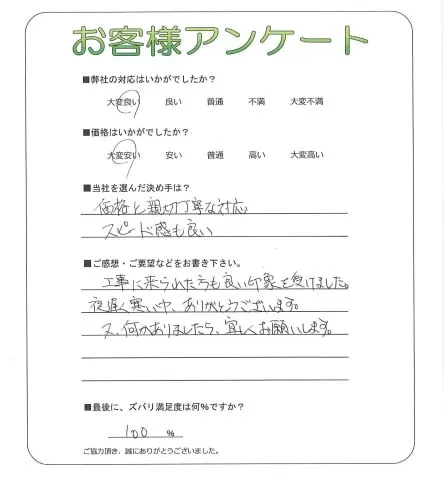 お客様アンケート
■弊社の対応はいかがでしたか?
大変良い 良い 普通 不満 大変不満
■価格はいかがでしたか?
大変安い 安い 普通 高い 大変高い
■当社を選んだ決め手は?
価格と親切丁寧な対応
スピード感も良い
■ご感想・ご要望などをお書き下さい。
工事に来られた方も良い印象を受けました。
夜遅く寒い中、ありがとうございます。
又、何かありましたら、宜しくお願いします。
■最後に、ズバリ満足度は何%ですか?
100 %
ご協力頂き、誠にありがとうございました。